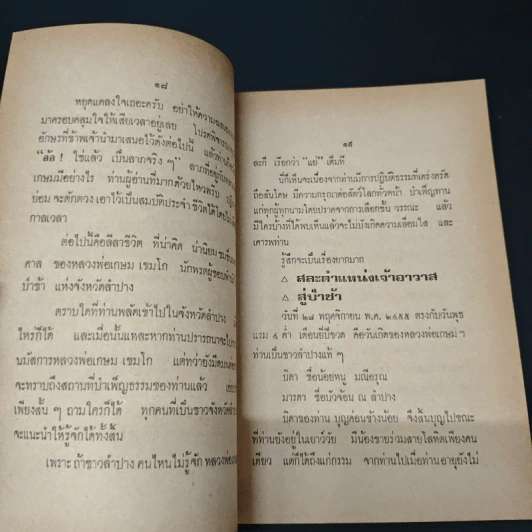 ๑๘
หยุดแคลงใจเถอะครับ อย่าให้ความ
มาครอบคลุมใจให้เสียเวลาอยู่เลย
อักษรที่ข้าพเจ้านำมาเสนอไว้ดังต่อไปนี้ แล้วท่าน
"อ้อ ! ใช่แล้ว เป็นลาภจริง ๆ" ลาภที่อยู่กับ
เกษมมีอย่างไร ท่านผู้อ่านที่มากด้วยไหวพริบ
ย่อม จะตักตวง เอาไว้เป็นสมบัติประจำ ชีวิตได้โดยไม่
กาลเวลา
ต่อไปนี้คือลีลาชีวิต ที่น่าคิด น่านิยม
ตาล ของหลวงพ่อเกษม เขมโก นักพรตผู้
ป่าช้า แห่งจังหวัดลำปาง
ตราบใดที่ท่านพลัดเข้าไปในจังหวัดลำปาง
ไหร่ก็ได้ และเมื่อนั้นแหละหากท่านปรารถนาจะไป
นมัสการหลวงพ่อเกษม เขมโก แต่ทว่ายัง
จะทราบถึงสถานที่บำเพ็ญธรรมของท่านแล้ว
เพียงสั้น ๆ ถามใครก็ได้ ทุกคนที่เป็นชาวจังหวัด
จะแนะนำให้รู้จักได้ทั้งสิ้น
เพราะ ถ้าชาวลำปาง คนไหน ไม่รู้จัก หลวงพ่อ
๑๙
ละก็ เรียกว่า "แย่" เต็มที่
นี่ก็เห็นจะเนื่องจากท่านมีการปฏิบัติธรรมที่เคร่งครัด
ถือสันโดษ มีความกรุณาต่อสัตว์โลกทั่วหน้า บำเพ็ญทาน
แก่ทุกผู้ทุกนามโดยปราศจากการเลือกชั้น วรรณะ แล้ว
มีใครบ้างที่ได้พบเห็นแล้วจะไม่บังเกิดความเลื่อมใส และ
เคารพท่าน
รู้สึกจะเป็นเรื่องยากมาก
△ สละตำแหน่งเจ้าอาวาส
△ สู่ป่าช้า
วันที่ ๒๘ พฤศจิกายน พ.ศ. ๒๔๕๕ ตรงกับวันพุธ
แรม ๔ ค่ำ เดือนยี่ปีชวด คือวันเกิดของหลวงพ่อเกษม ฯ
ท่านเป็นชาวลำปางแท้ ๆ
บิดา ชื่อน้อยหนู มณีอรุณ
มารดา ชื่อบัวจ้อน ณ ลำปาง
บิดาของท่าน บุญค่อนข้างน้อย จึงสิ้นบุญไปขณะ
ที่ท่านยังอยู่ในเยาว์วัย มีน้องชายร่วมสายโลหิตเพียงคน
เดียว แต่ก็ได้ถึงแก่กรรม จากท่านไปเมื่อท่านอายุยังไม่